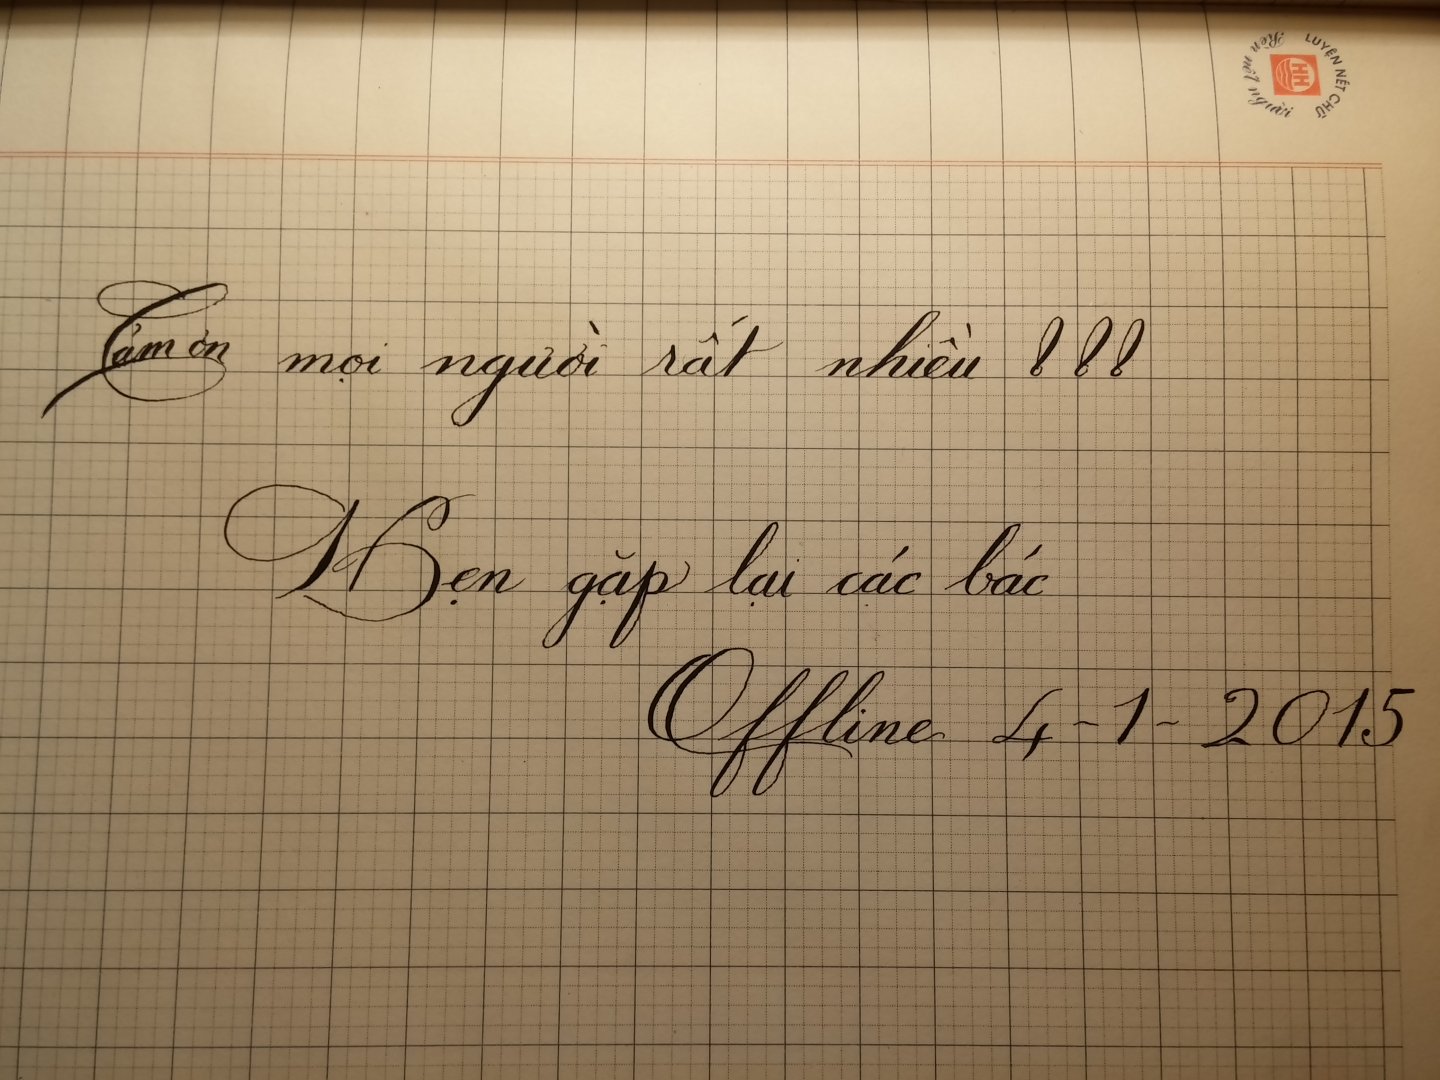 LUYỆN NÉT CHỮ
Rèn nết người
HH
Cảm ơn mọi người rất nhiều !!!
Hẹn gặp lại các bác
Offline 4-1-2015